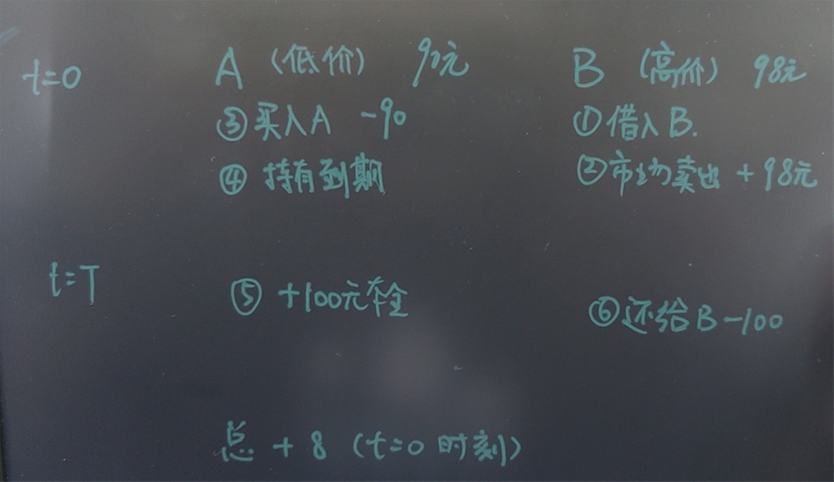 t=0 A (低价) 90元 B (高价) 98元
③买入A -90 ①借入B.
④持有到期 ②市场卖出 +98元
t=T ⑤+100元本金 ⑥还给B-100
总 +8 (t=0时刻)